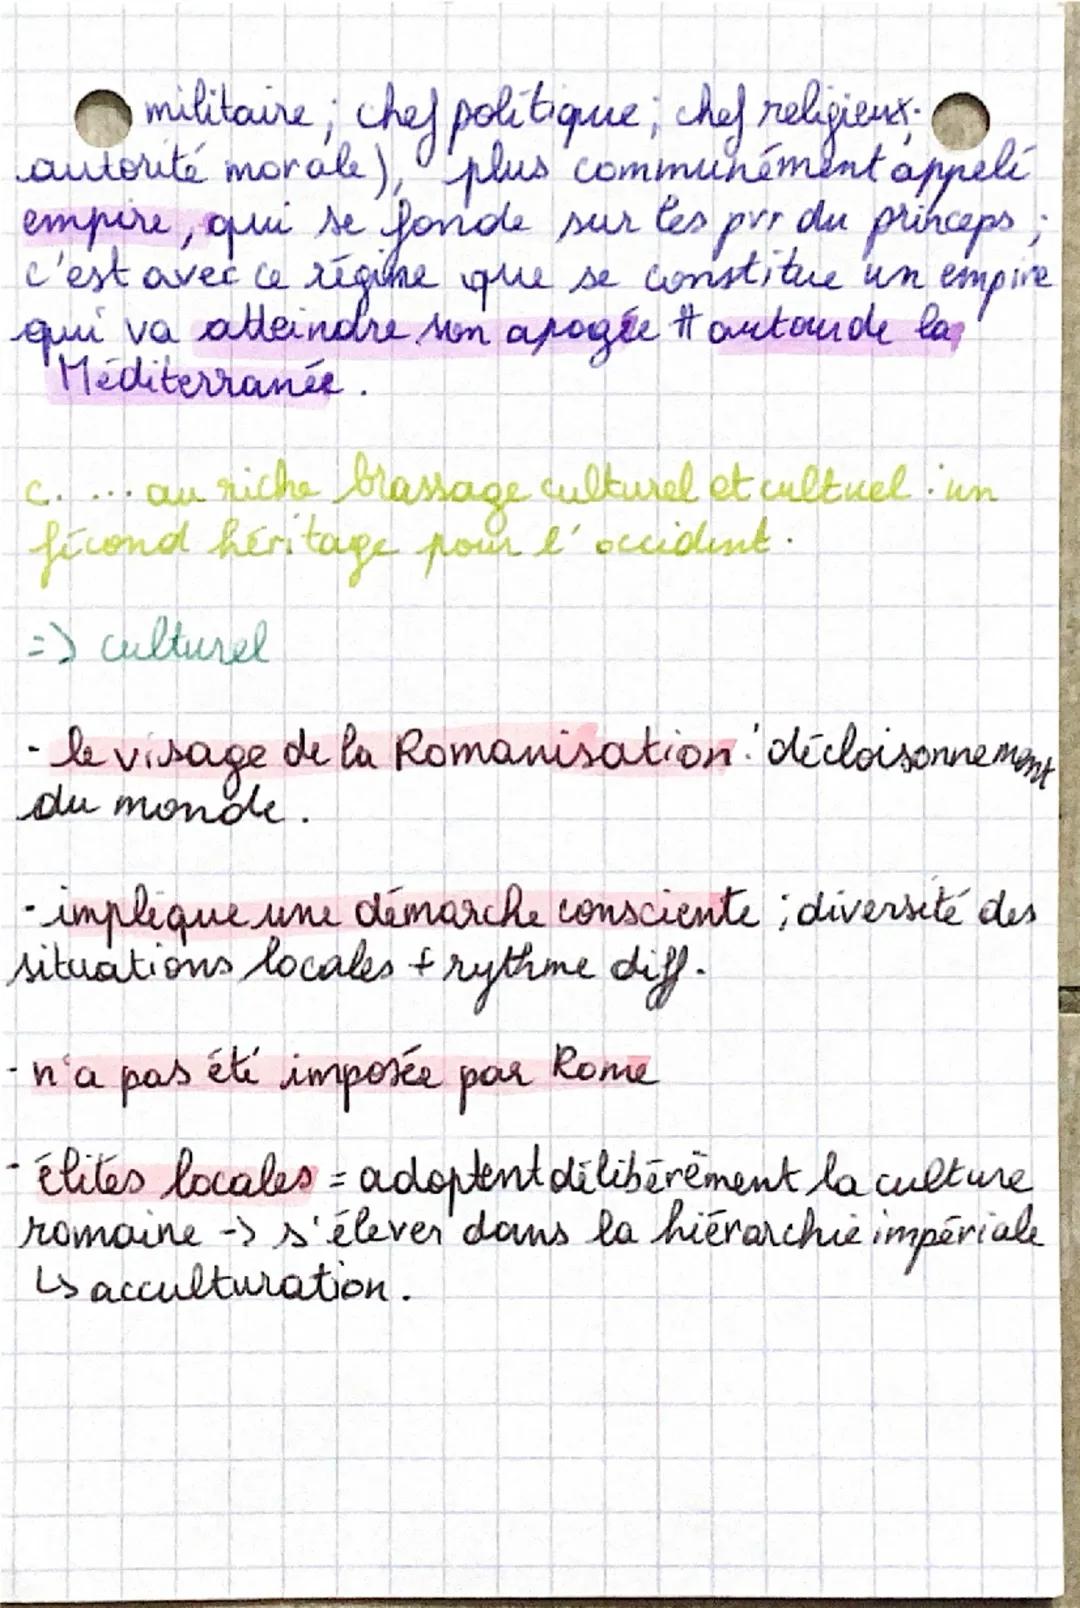 militaire ; chef politique ; chef religieux.
autorité morale), plus communément appelé
empire, qui se fonde sur les pvr du princeps ;
c'est avec ce régime que se constitue un empire
qui va atteindre son apogée # autour de la
Méditerranée.
c. ... au riche brassage culturel et cultuel : un
fécond héritage pour l'occident.
=> culturel
- le visage de la Romanisation : décloisonnement
du monde.
- implique une démarche consciente ; diversité des
situations locales + rythme diff.
- n'a pas été imposée par Rome
- élites locales = adoptent délibérément la culture
romaine -> s'élever dans la hiérarchie impériale
↳ acculturation.